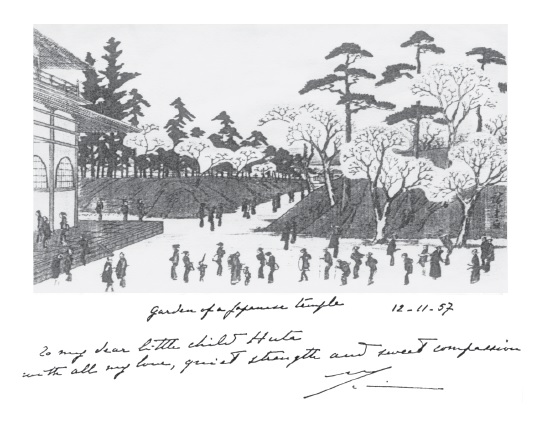 Garden of a Japanese temple
12-11-57
To my dear little child Huta
with all my love, quiet strength and sweet compassion